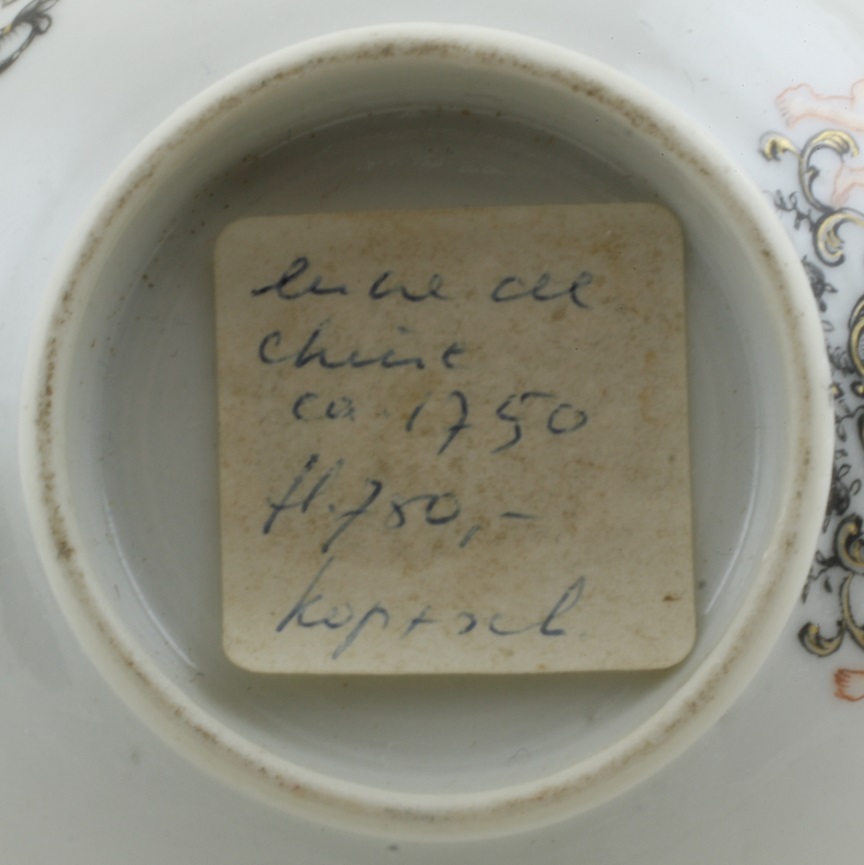 encre de
chine
ca. 1750
fl. 750,-
kop + sch